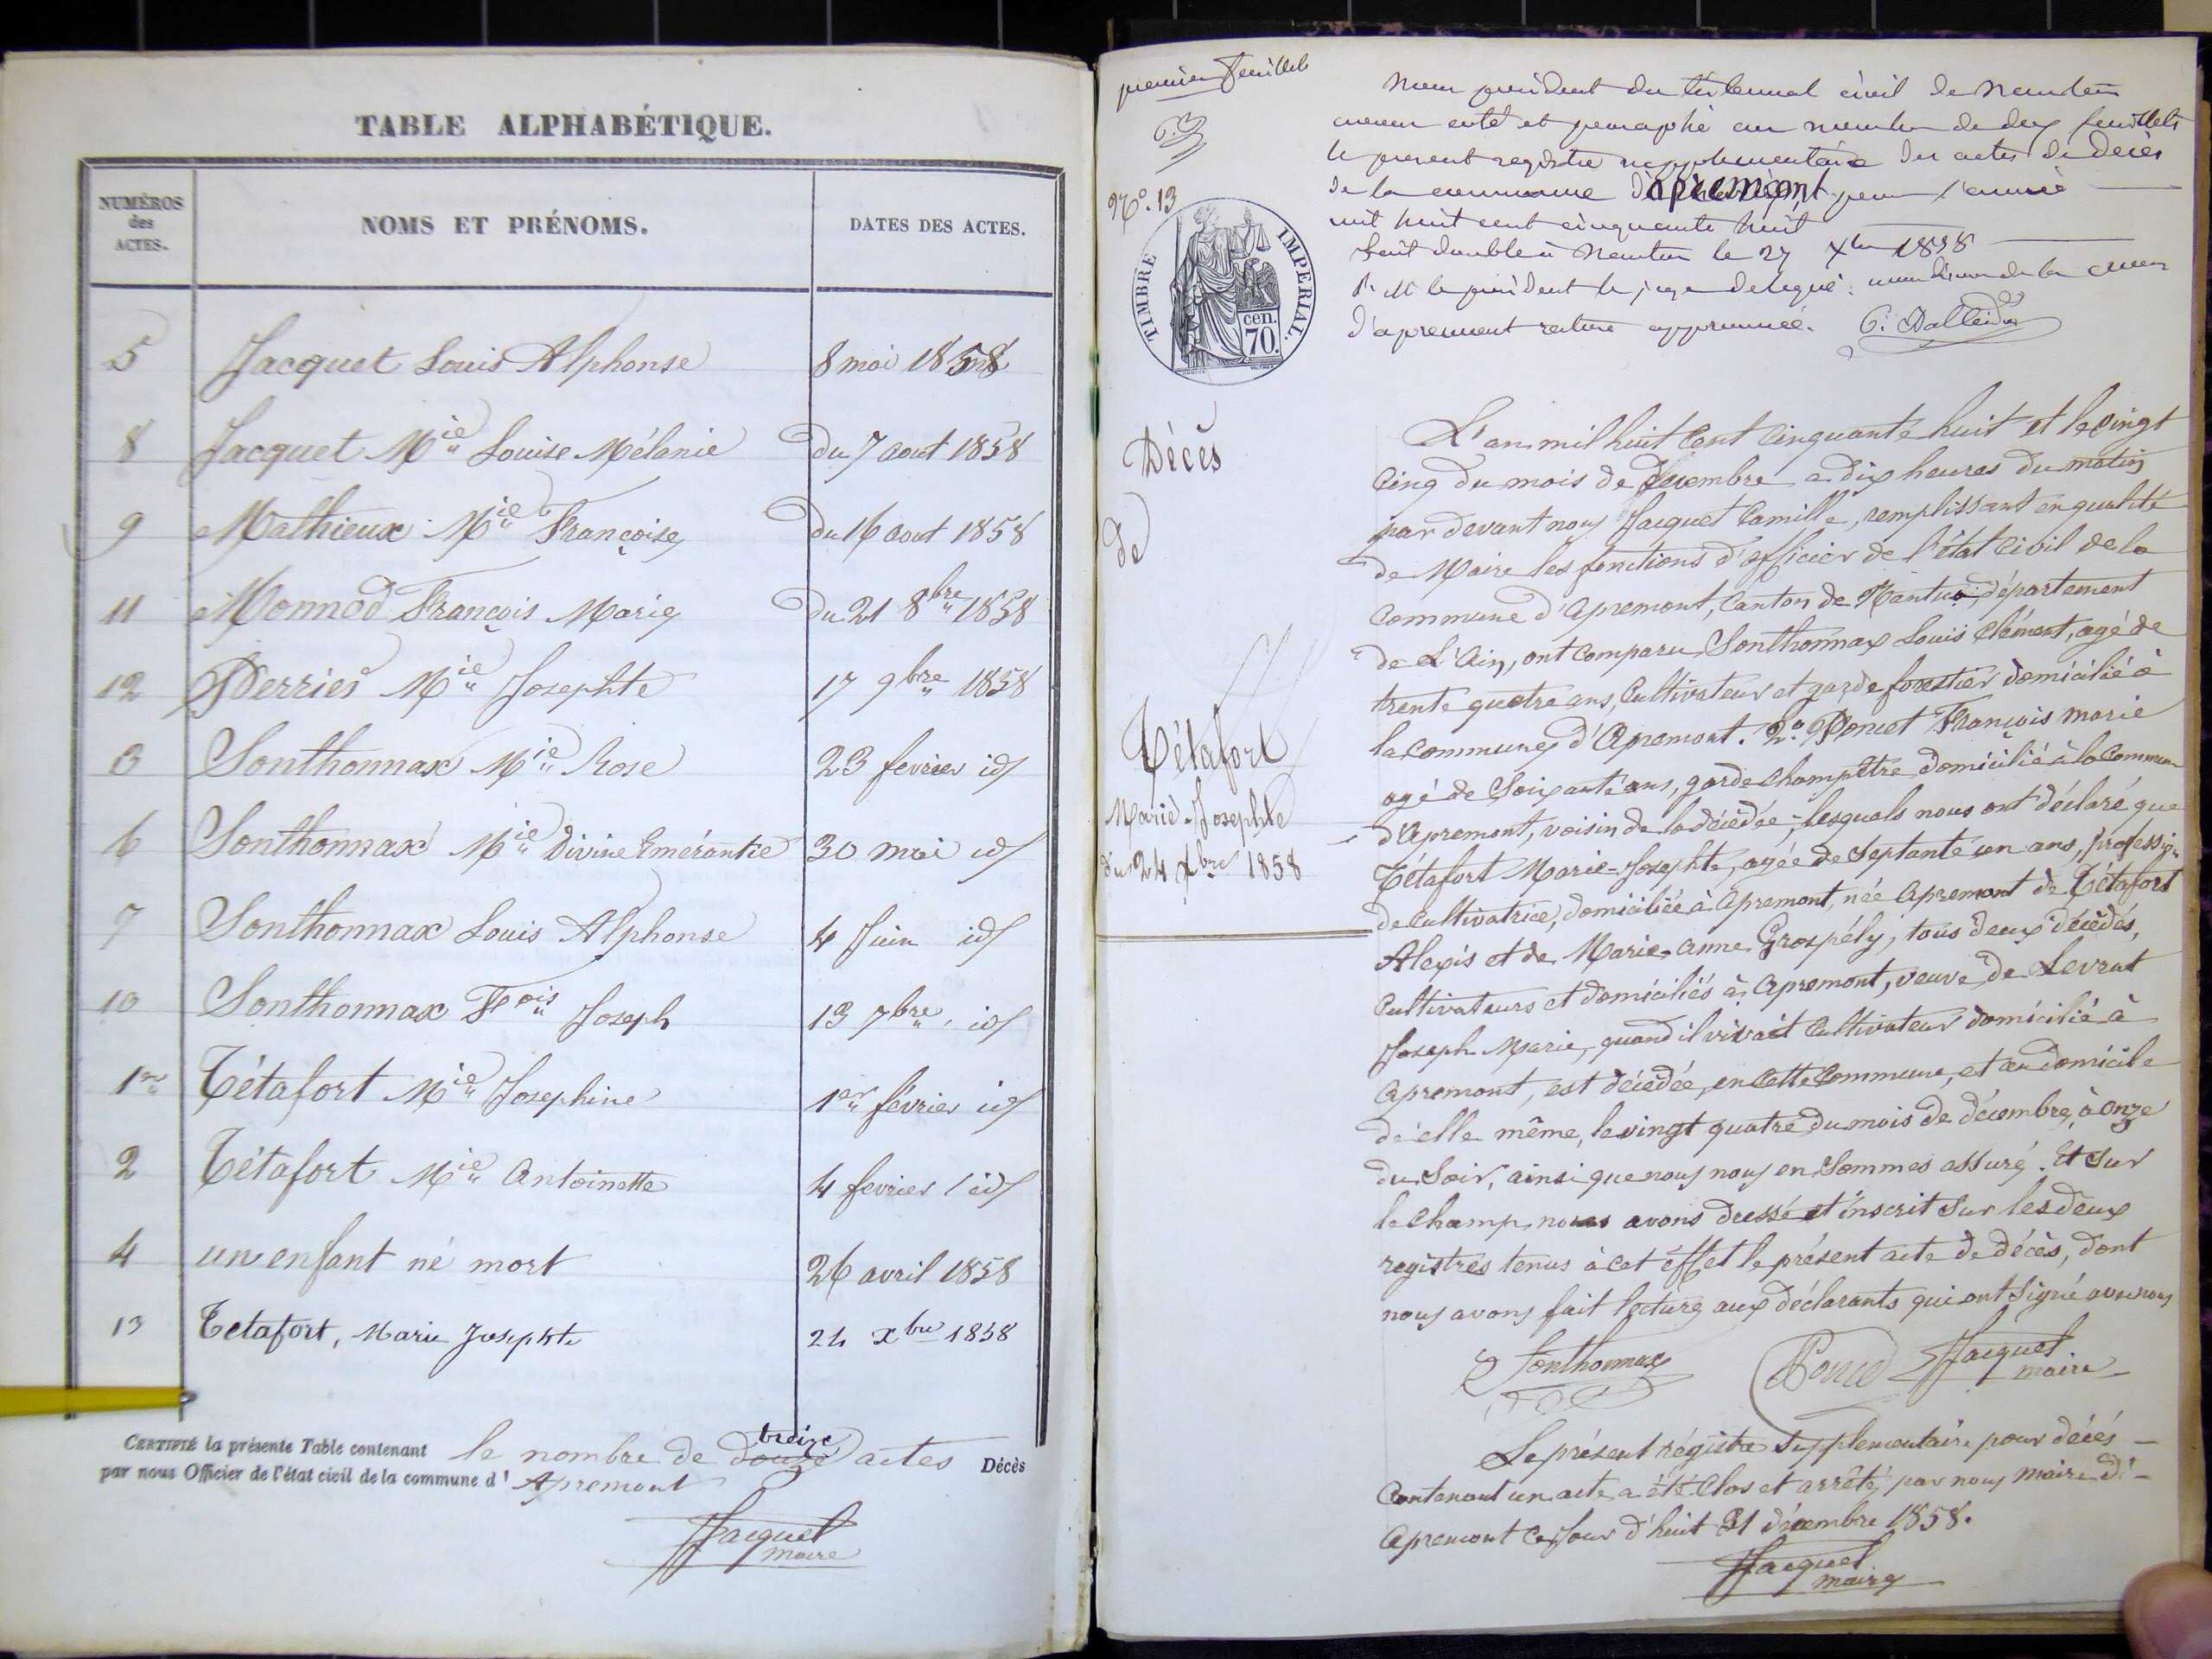 TABLE ALPHABÉTIQUE.
NUMÉROS des ACTES.
NOMS ET PRÉNOMS.
DATES DES ACTES.
5 Jacquet Louis Alphonse 8 mai 1858
8 Jacquet Mie Louise Mélanie du 7 aout 1858
9 Mathieux Mie Françoise du 16 aout 1858
11 Monnod François Marie du 21 8bre 1858
12 Perrier Mie Josephte 17 9bre 1858
3 Sonthonnax Mie Rose 23 fevrier id
6 Sonthonnax Mie Divine Emérantie 30 mai id
7 Sonthonnax Louis Alphonse 4 Juin id
10 Sonthonnax Fois Joseph 13 7bre id
1er Tétafort Mie Josephine 1er février id
2 Tétafort Mie Antoinette 4 fevrier id
4 un enfant né mort 26 avril 1858
13 Tetafort, Marie Josephte 24 xbre 1858
CERTIFIÉ la présente Table contenant le nombre de douze treize actes Décès
par nous Officier de l'état civil de la commune d' Apremont
Jacquet
maire
premier feuillet
No. 13
TIMBRE IMPERIAL.
cen.
70.
Nous president du tribunal civil de Nantua
avons coté et paraphé au nombre de deux feuillets
le present registre supplementaire des actes de décès
de la commune d'apremont pour l'année
mil huit cent cinquante huit
Fait double à Nantua le 27 Xbre 1858
Pr M le président le juge delegué:
d'apremont rature approuvée.
Décès
de
Tétafort
Marie-Josephte
du 24 Xbre 1858
L'an mil huit Cent Cinquante huit et le vingt
Cinq du mois de Decembre a dix heures du matin
par devant nous Jacquet Camille, remplissant en qualité
de Maire les fonctions d'officier de l'état Civil de la
Commune d'Apremont, Canton de Nantua, département
de L'Ain, ont Comparu Sonthonnax Louis Clément, agé de
trente quatre ans, Cultivateur et garde forestier domicilié à
la Commune d'Apremont. 2o Poncet François Marie
agé de Soixante ans, garde Champêtre domicilié à la Commune
d'Apremont, voisin de la décédée; lesquels nous ont déclaré que
Tétafort Marie-Josephte, agée de Septante un ans, profession
de Cultivatrice, domiciliée à Apremont, née Apremont de Tétafort
Alexis et de Marie-Anne Grospély, tous deux décédés,
Cultivateurs et domiciliés à Apremont, veuve de Levrat
Joseph Marie, quand il vivait Cultivateur domicilié à
Apremont, est décédée, en Cette Commune, et au domicile
d'elle même, le vingt quatre du mois de décembre, à onze
du Soir, ainsi que nous nous en Sommes assuré. Et Sur
le Champ nous avons dressé et inscrit Sur les deux
registres tenus à cet éffet le présent acte de décès, dont
nous avons fait lecture aux déclarants qui ont Signé avec nous
Sonthonnax Poncet Jacquet
maire
Le présent régistre Supplementaire pour décès
Contenant un acte a été Clos et arrêté par nous Maire d'
Apremont Ce Jour d'huit 31 décembre 1858.
Jacquet
maire